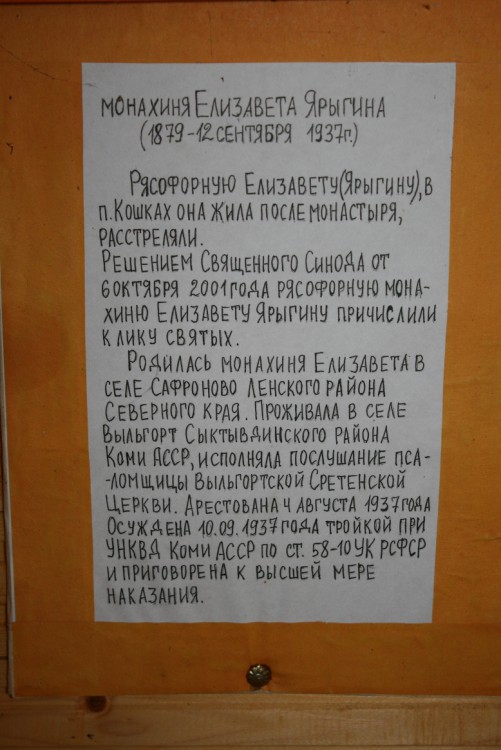 Монахиня Елизавета Ярыгина
(1879-12 сентября 1937г.)
Рясофорную Елизавету(Ярыгину), в
п. Кошках она жила после монастыря,
расстреляли.
Решением Священного Синода от
6 октября 2001 года рясофорную мона-
хиню Елизавету Ярыгину причислили
к лику святых.
Родилась монахиня Елизавета в
селе Сафроново Ленского района
Северного края. Проживала в селе
Выльгорт Сыктывдинского района
Коми АССР, исполняла послушание пса-
-ломщицы Выльгортской Сретенской
Церкви. Арестована 4 августа 1937 года
Осуждена 10.09.1937 года тройкой при
УНКВД Коми АССР по ст. 58-10 УК РСФСР
и приговорена к высшей мере
наказания.